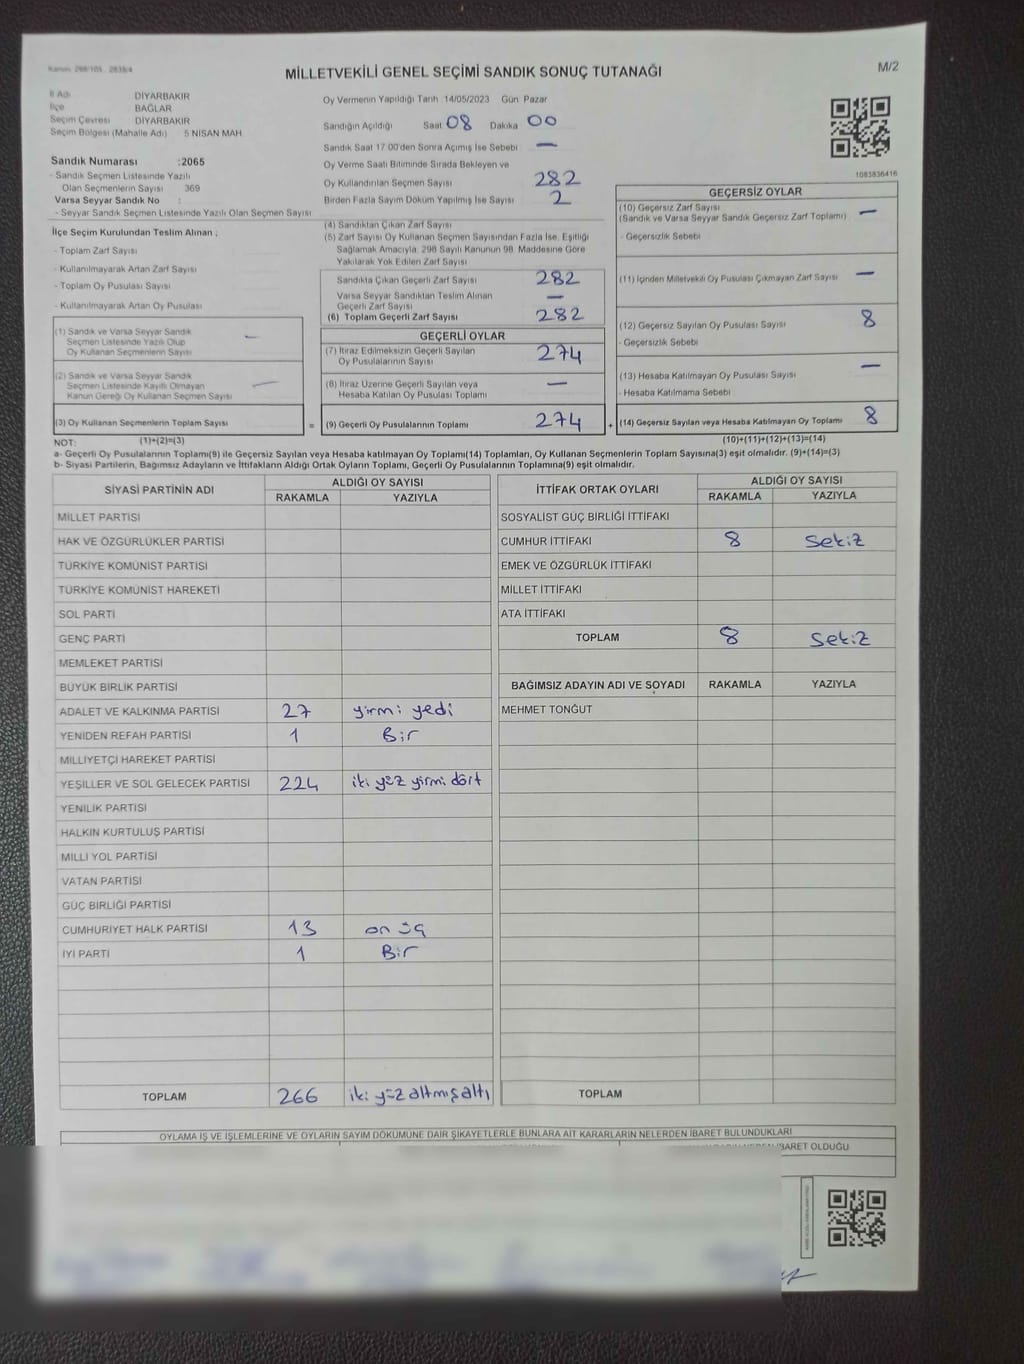 MİLLETVEKİLİ GENEL SEÇİMİ SANDIK SONUÇ TUTANAĞI
M/2
İl Adı DİYARBAKIR
İlçe BAĞLAR
Seçim Çevresi DİYARBAKIR
Seçim Bölgesi (Mahalle Adı) 5 NİSAN MAH
Sandık Numarası :2065
- Sandık Seçmen Listesinde Yazılı
Olan Seçmenlerin Sayısı 369
Varsa Seyyar Sandık No :
- Seyyar Sandık Seçmen Listesinde Yazılı Olan Seçmen Sayısı
İlçe Seçim Kurulundan Teslim Alınan ;
- Toplam Zarf Sayısı
- Kullanılmayarak Artan Zarf Sayısı
- Toplam Oy Pusulası Sayısı
- Kullanılmayarak Artan Oy Pusulası
(1) Sandık ve Varsa Seyyar Sandık
Seçmen Listesinde Yazılı Olup
Oy Kullanan Seçmenlerin Sayısı —
(2) Sandık ve Varsa Seyyar Sandık
Seçmen Listesinde Kayıtlı Olmayan
Kanun Gereği Oy Kullanan Seçmen Sayısı —
(3) Oy Kullanan Seçmenlerin Toplam Sayısı
Oy Vermenin Yapıldığı Tarih 14/05/2023 Gün Pazar
Sandığın Açıldığı Saat 08 Dakika 00
Sandık Saat 17.00'den Sonra Açılmış İse Sebebi —
Oy Verme Saati Bitiminde Sırada Bekleyen ve
Oy Kullandırılan Seçmen Sayısı 282
Birden Fazla Sayım Döküm Yapılmış İse Sayısı 2
(4) Sandıktan Çıkan Zarf Sayısı
(5) Zarf Sayısı Oy Kullanan Seçmen Sayısından Fazla İse, Eşitliği
Sağlamak Amacıyla, 298 Sayılı Kanunun 98. Maddesine Göre
Yakılarak Yok Edilen Zarf Sayısı
Sandıkta Çıkan Geçerli Zarf Sayısı 282
Varsa Seyyar Sandıktan Teslim Alınan
Geçerli Zarf Sayısı —
(6) Toplam Geçerli Zarf Sayısı 282
GEÇERLİ OYLAR
(7) İtiraz Edilmeksizin Geçerli Sayılan
Oy Pusulalarının Sayısı 274
(8) İtiraz Üzerine Geçerli Sayılan veya
Hesaba Katılan Oy Pusulası Toplamı —
= (9) Geçerli Oy Pusulalarının Toplamı 274
1083836416
GEÇERSİZ OYLAR
(10) Geçersiz Zarf Sayısı
(Sandık ve Varsa Seyyar Sandık Geçersiz Zarf Toplamı) —
- Geçersizlik Sebebi
(11) İçinden Milletvekili Oy Pusulası Çıkmayan Zarf Sayısı —
(12) Geçersiz Sayılan Oy Pusulası Sayısı 8
- Geçersizlik Sebebi
(13) Hesaba Katılmayan Oy Pusulası Sayısı —
- Hesaba Katılmama Sebebi
+ (14) Geçersiz Sayılan veya Hesaba Katılmayan Oy Toplamı 8
NOT: (1)+(2)=(3) (10)+(11)+(12)+(13)=(14)
a- Geçerli Oy Pusulalarının Toplamı(9) ile Geçersiz Sayılan veya Hesaba katılmayan Oy Toplamı(14) Toplamları, Oy Kullanan Seçmenlerin Toplam Sayısına(3) eşit olmalıdır. (9)+(14)=(3)
b- Siyasi Partilerin, Bağımsız Adayların ve İttifakların Aldığı Ortak Oyların Toplamı, Geçerli Oy Pusulalarının Toplamına(9) eşit olmalıdır.
SİYASİ PARTİNİN ADI ALDIĞI OY SAYISI
RAKAMLA YAZIYLA
MİLLET PARTİSİ
HAK VE ÖZGÜRLÜKLER PARTİSİ
TÜRKİYE KOMÜNİST PARTİSİ
TÜRKİYE KOMÜNİST HAREKETİ
SOL PARTİ
GENÇ PARTİ
MEMLEKET PARTİSİ
BÜYÜK BİRLİK PARTİSİ
ADALET VE KALKINMA PARTİSİ 27 yirmi yedi
YENİDEN REFAH PARTİSİ 1 Bir
MİLLİYETÇİ HAREKET PARTİSİ
YEŞİLLER VE SOL GELECEK PARTİSİ 224 iki yüz yirmi dört
YENİLİK PARTİSİ
HALKIN KURTULUŞ PARTİSİ
MİLLİ YOL PARTİSİ
VATAN PARTİSİ
GÜÇ BİRLİĞİ PARTİSİ
CUMHURİYET HALK PARTİSİ 13 on üç
İYİ PARTİ 1 Bir
TOPLAM 266 iki yüz altmış altı
İTTİFAK ORTAK OYLARI ALDIĞI OY SAYISI
RAKAMLA YAZIYLA
SOSYALİST GÜÇ BİRLİĞİ İTTİFAKI
CUMHUR İTTİFAKI 8 Sekiz
EMEK VE ÖZGÜRLÜK İTTİFAKI
MİLLET İTTİFAKI
ATA İTTİFAKI
TOPLAM 8 Sekiz
BAĞIMSIZ ADAYIN ADI VE SOYADI RAKAMLA YAZIYLA
MEHMET TONĞUT
TOPLAM
OYLAMA İŞ VE İŞLEMLERİNE VE OYLARIN SAYIM DÖKÜMÜNE DAİR ŞİKAYETLERLE BUNLARA AİT KARARLARIN NELERDEN İBARET BULUNDUKLARI
İBARET OLDUĞU